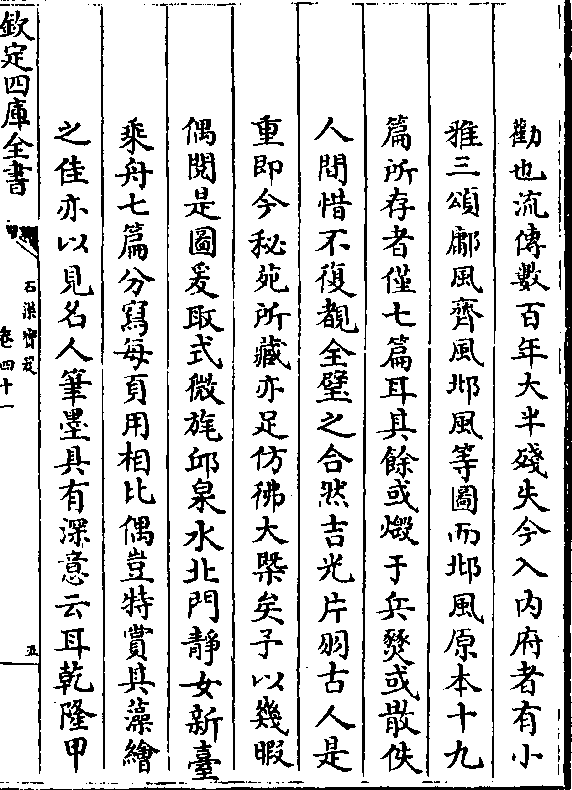 勸也流傳數百年大半殘失今入内府者有小
雅三頌鄘風齊風邶風等圖而邶風原本十九
篇所存者僅七篇耳其餘或燬于兵燹或散佚
人間惜不復覩全璧之合然吉光片羽古人是
重即今秘苑所藏亦足仿彿大槩矣予以幾暇
偶閱是圖爰取式微旄邱泉水北門靜女新臺
乘舟七篇分寫每頁用相比偶豈特賞其藻繪
之佳亦以見名人筆墨具有深意云耳乾隆甲
欽定四庫全書
石渠寶笈
卷四十一
五